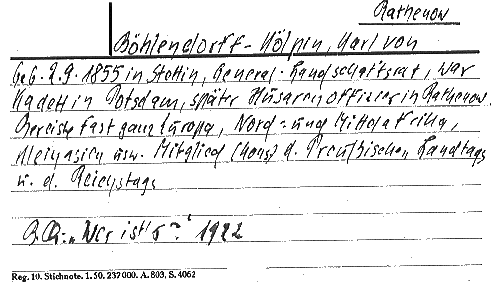 Rathenow
Böhlendorff-Kölpin, Karl von
Geb. 2.9.1855 in Stettin, General-Landschaftsrat, war
Kadett in Potsdam, später Husarenoffizier in Rathenow.
Bereiste fast ganz Europa, Nord- und Mittelafrika,
Kleinasien usw. Mitglied (kons) d. Preußischen Landtags
u. d. Reichstags
"Wer ist's?" 1922
Reg. 10. Stichnote. 1. 50. 237000. A. 803, S. 4062